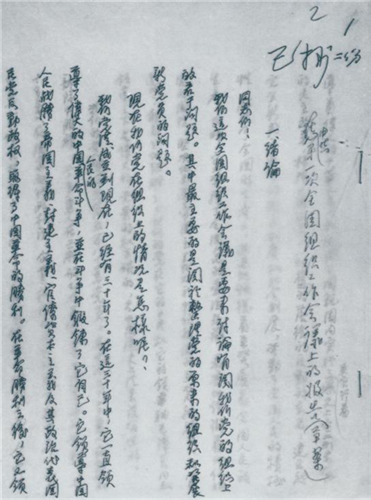 2 1
已抄二份
第一次全国组织工作会议上的报告（草案）
一 绪论
同志们！
我们这次全国组织工作会议是要来讨论有关我们党的组织上
的若干问题。其中最主要的是关于整理党的原来的组织和发展
新党员的问题。
现在我们党在组织上的情况是怎样呢？
我们党从成立到现在，已经有三十年了。在这三十年中，它直领
导了伟大的中国人民的革命斗争，并在斗争中锻炼了它自己。它领导中国
人民战胜了帝国主义、封建主义、官僚资本主义及其政治代表国
民党反动政权，取得了中国革命的胜利。在革命胜利之后，它又领